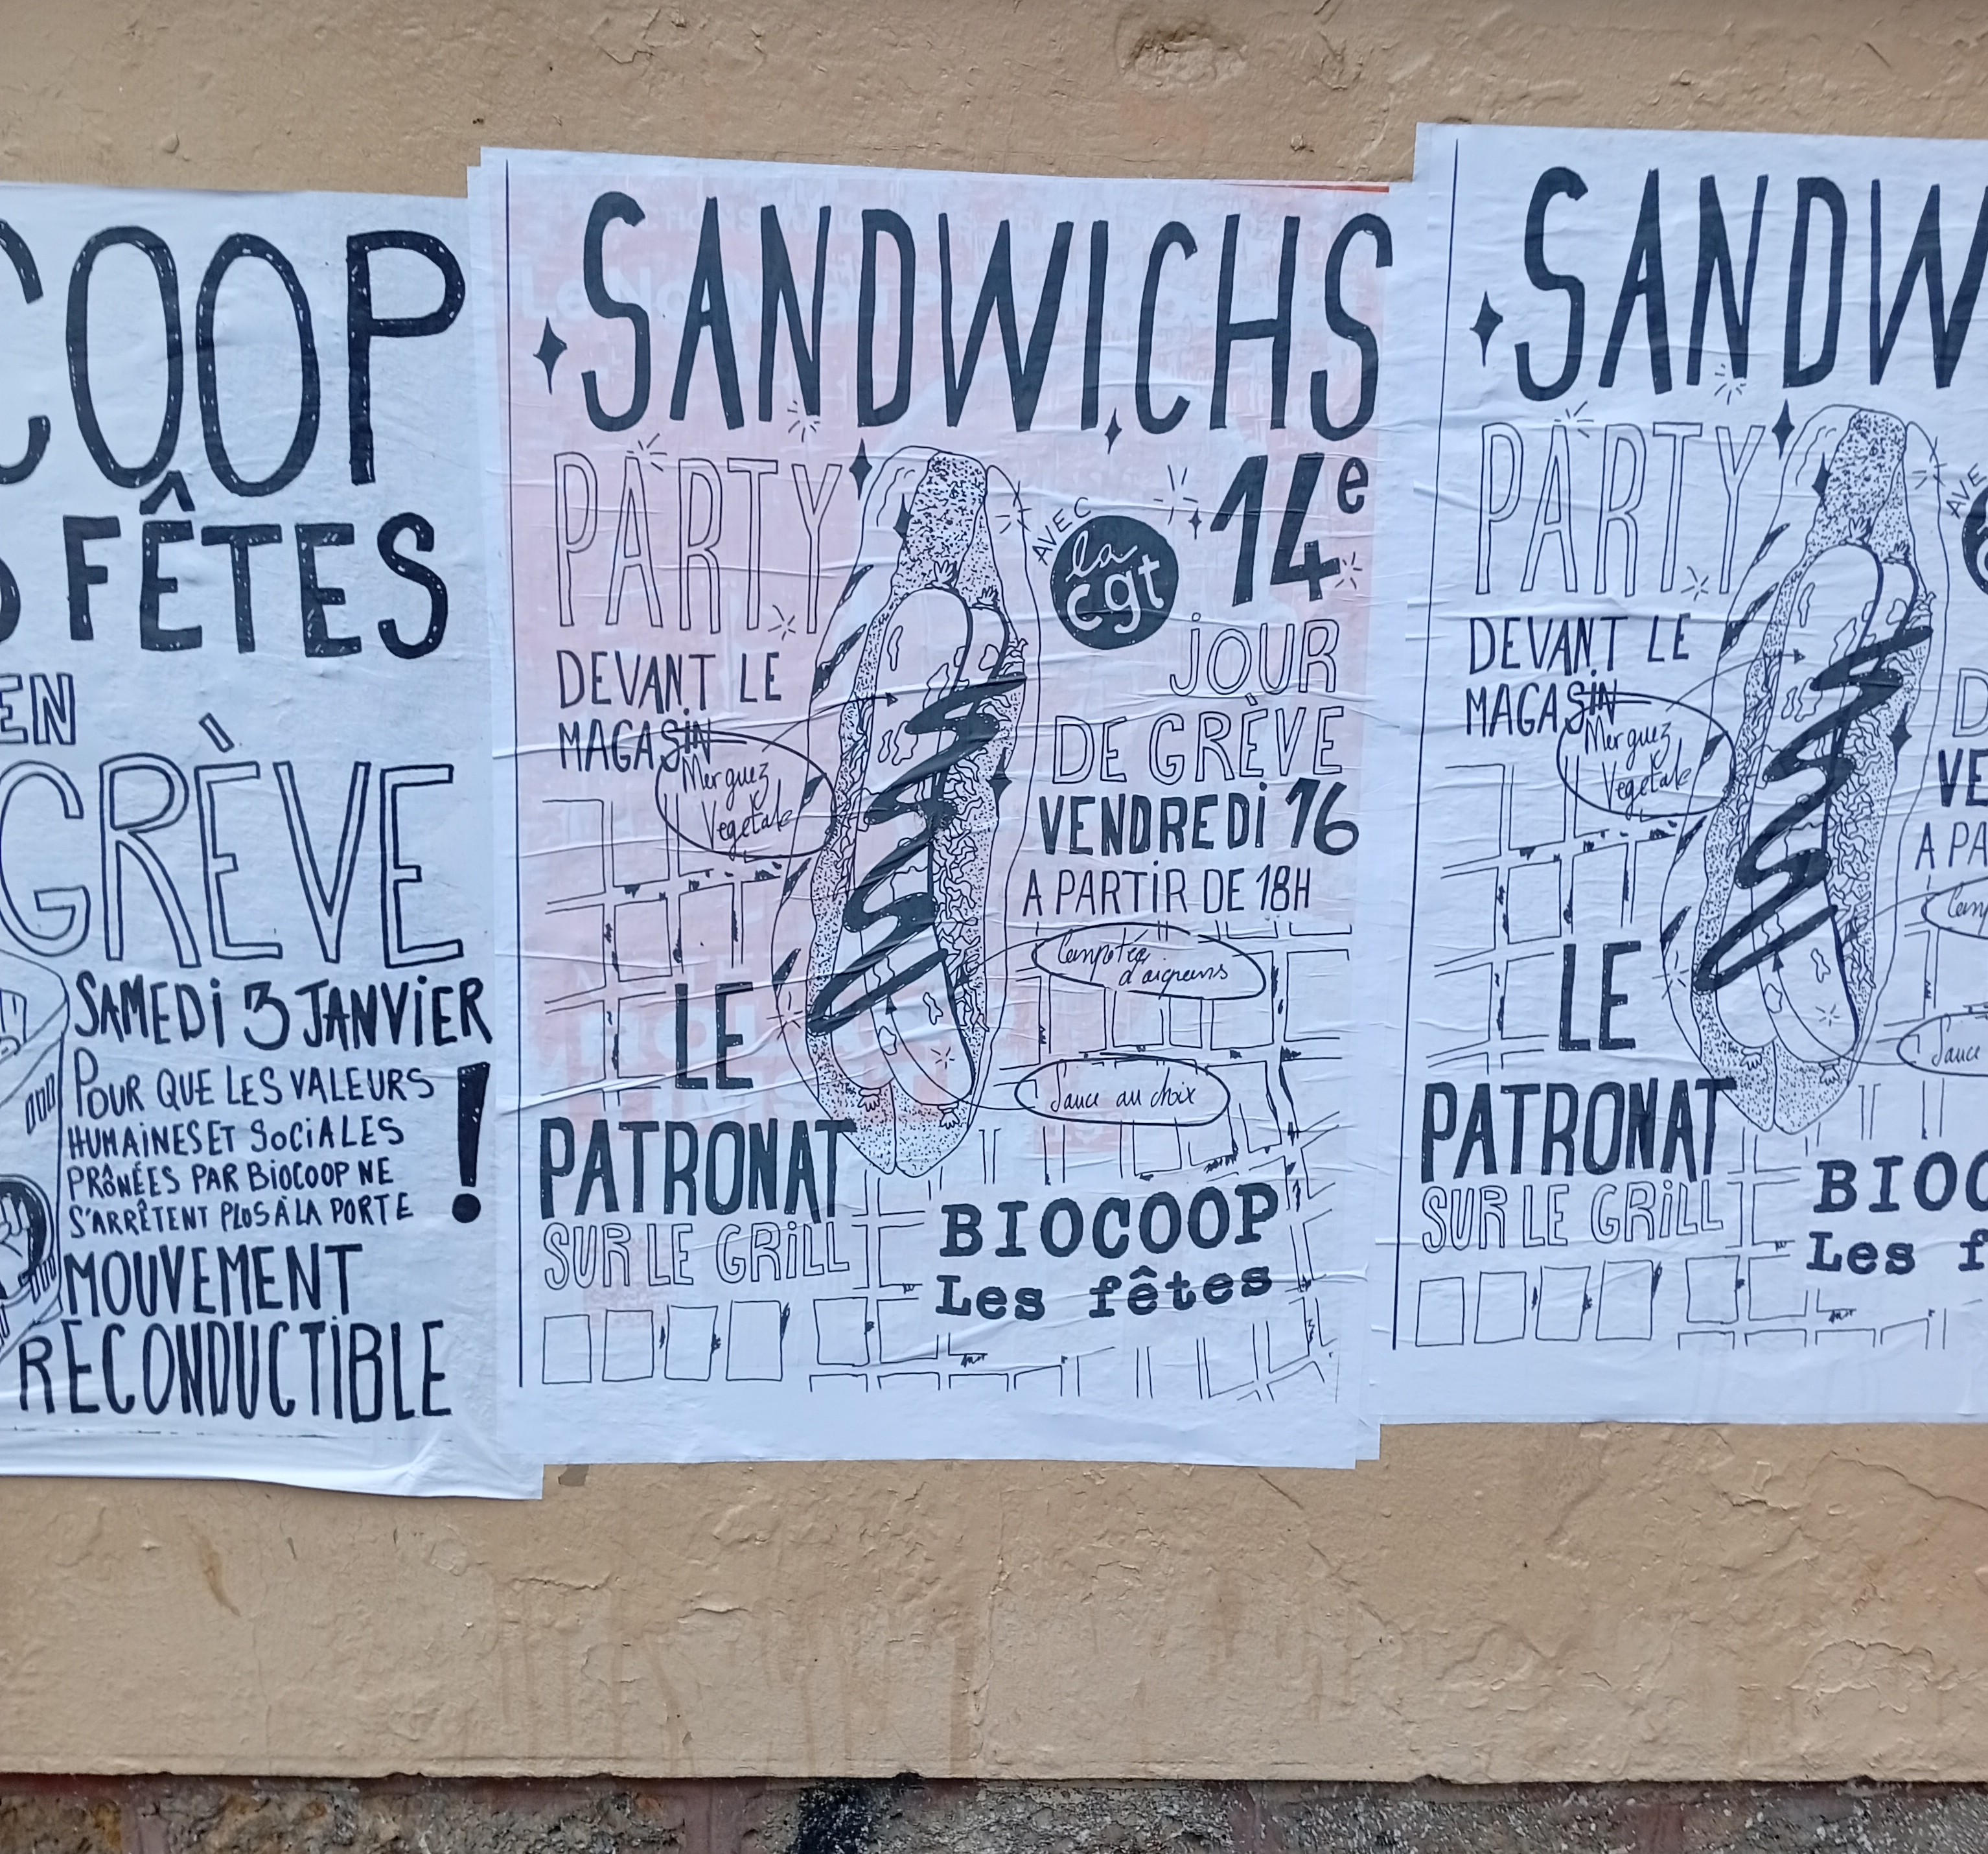 COOP
FÊTES
EN
GRÈVE
SAMEDI 3 JANVIER
POUR QUE LES VALEURS
HUMAINES ET SOCIALES
PRÔNÉES PAR BIOCOOP NE
S'ARRÊTENT PLUS À LA PORTE
!
MOUVEMENT
RECONDUCTIBLE
SANDWICHS
PARTY
DEVANT LE
MAGASIN
Merguez
Vegetale
AVEC
la
cgt
14e
JOUR
DE GRÈVE
VENDREDI 16
A PARTIR DE 18H
Compotée
d'oignons
Sauce au choix
LE
PATRONAT
SUR LE GRILL
BIOCOOP
Les fêtes
SANDW
PARTY
DEVANT LE
MAGASIN
Merguez
Vegetale
AVE
D
VE
A PA
Comp
Sauce
LE
PATRONAT
SUR LE GRILL
BIOC
Les f